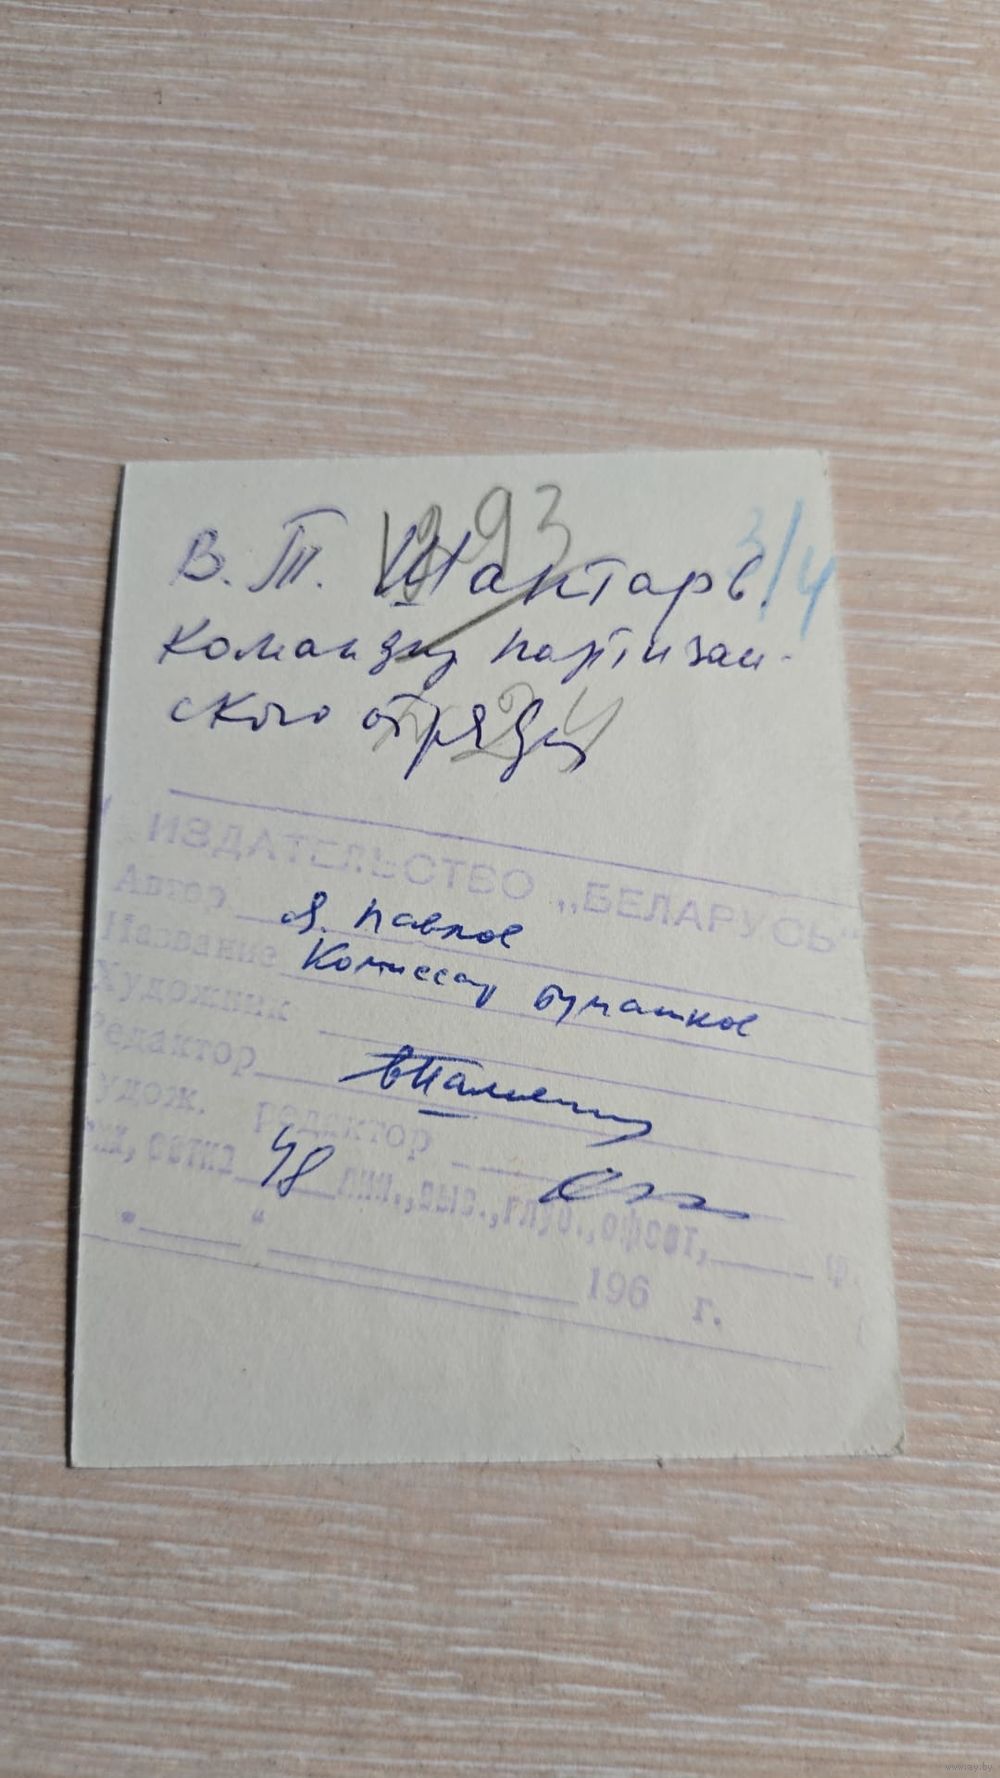 1293
3/4
В. Т. Шантарь
командир партизан-
ского отряда
24
ИЗДАТЕЛЬСТВО „БЕЛАРУСЬ“
Автор Я. Павлов
Название Комиссар Бумажков
Художник
Редактор
Худож. редактор
сетка 48 лин., выс., глуб., офсет, ф.
„ “ 196 г.
www.ay.by